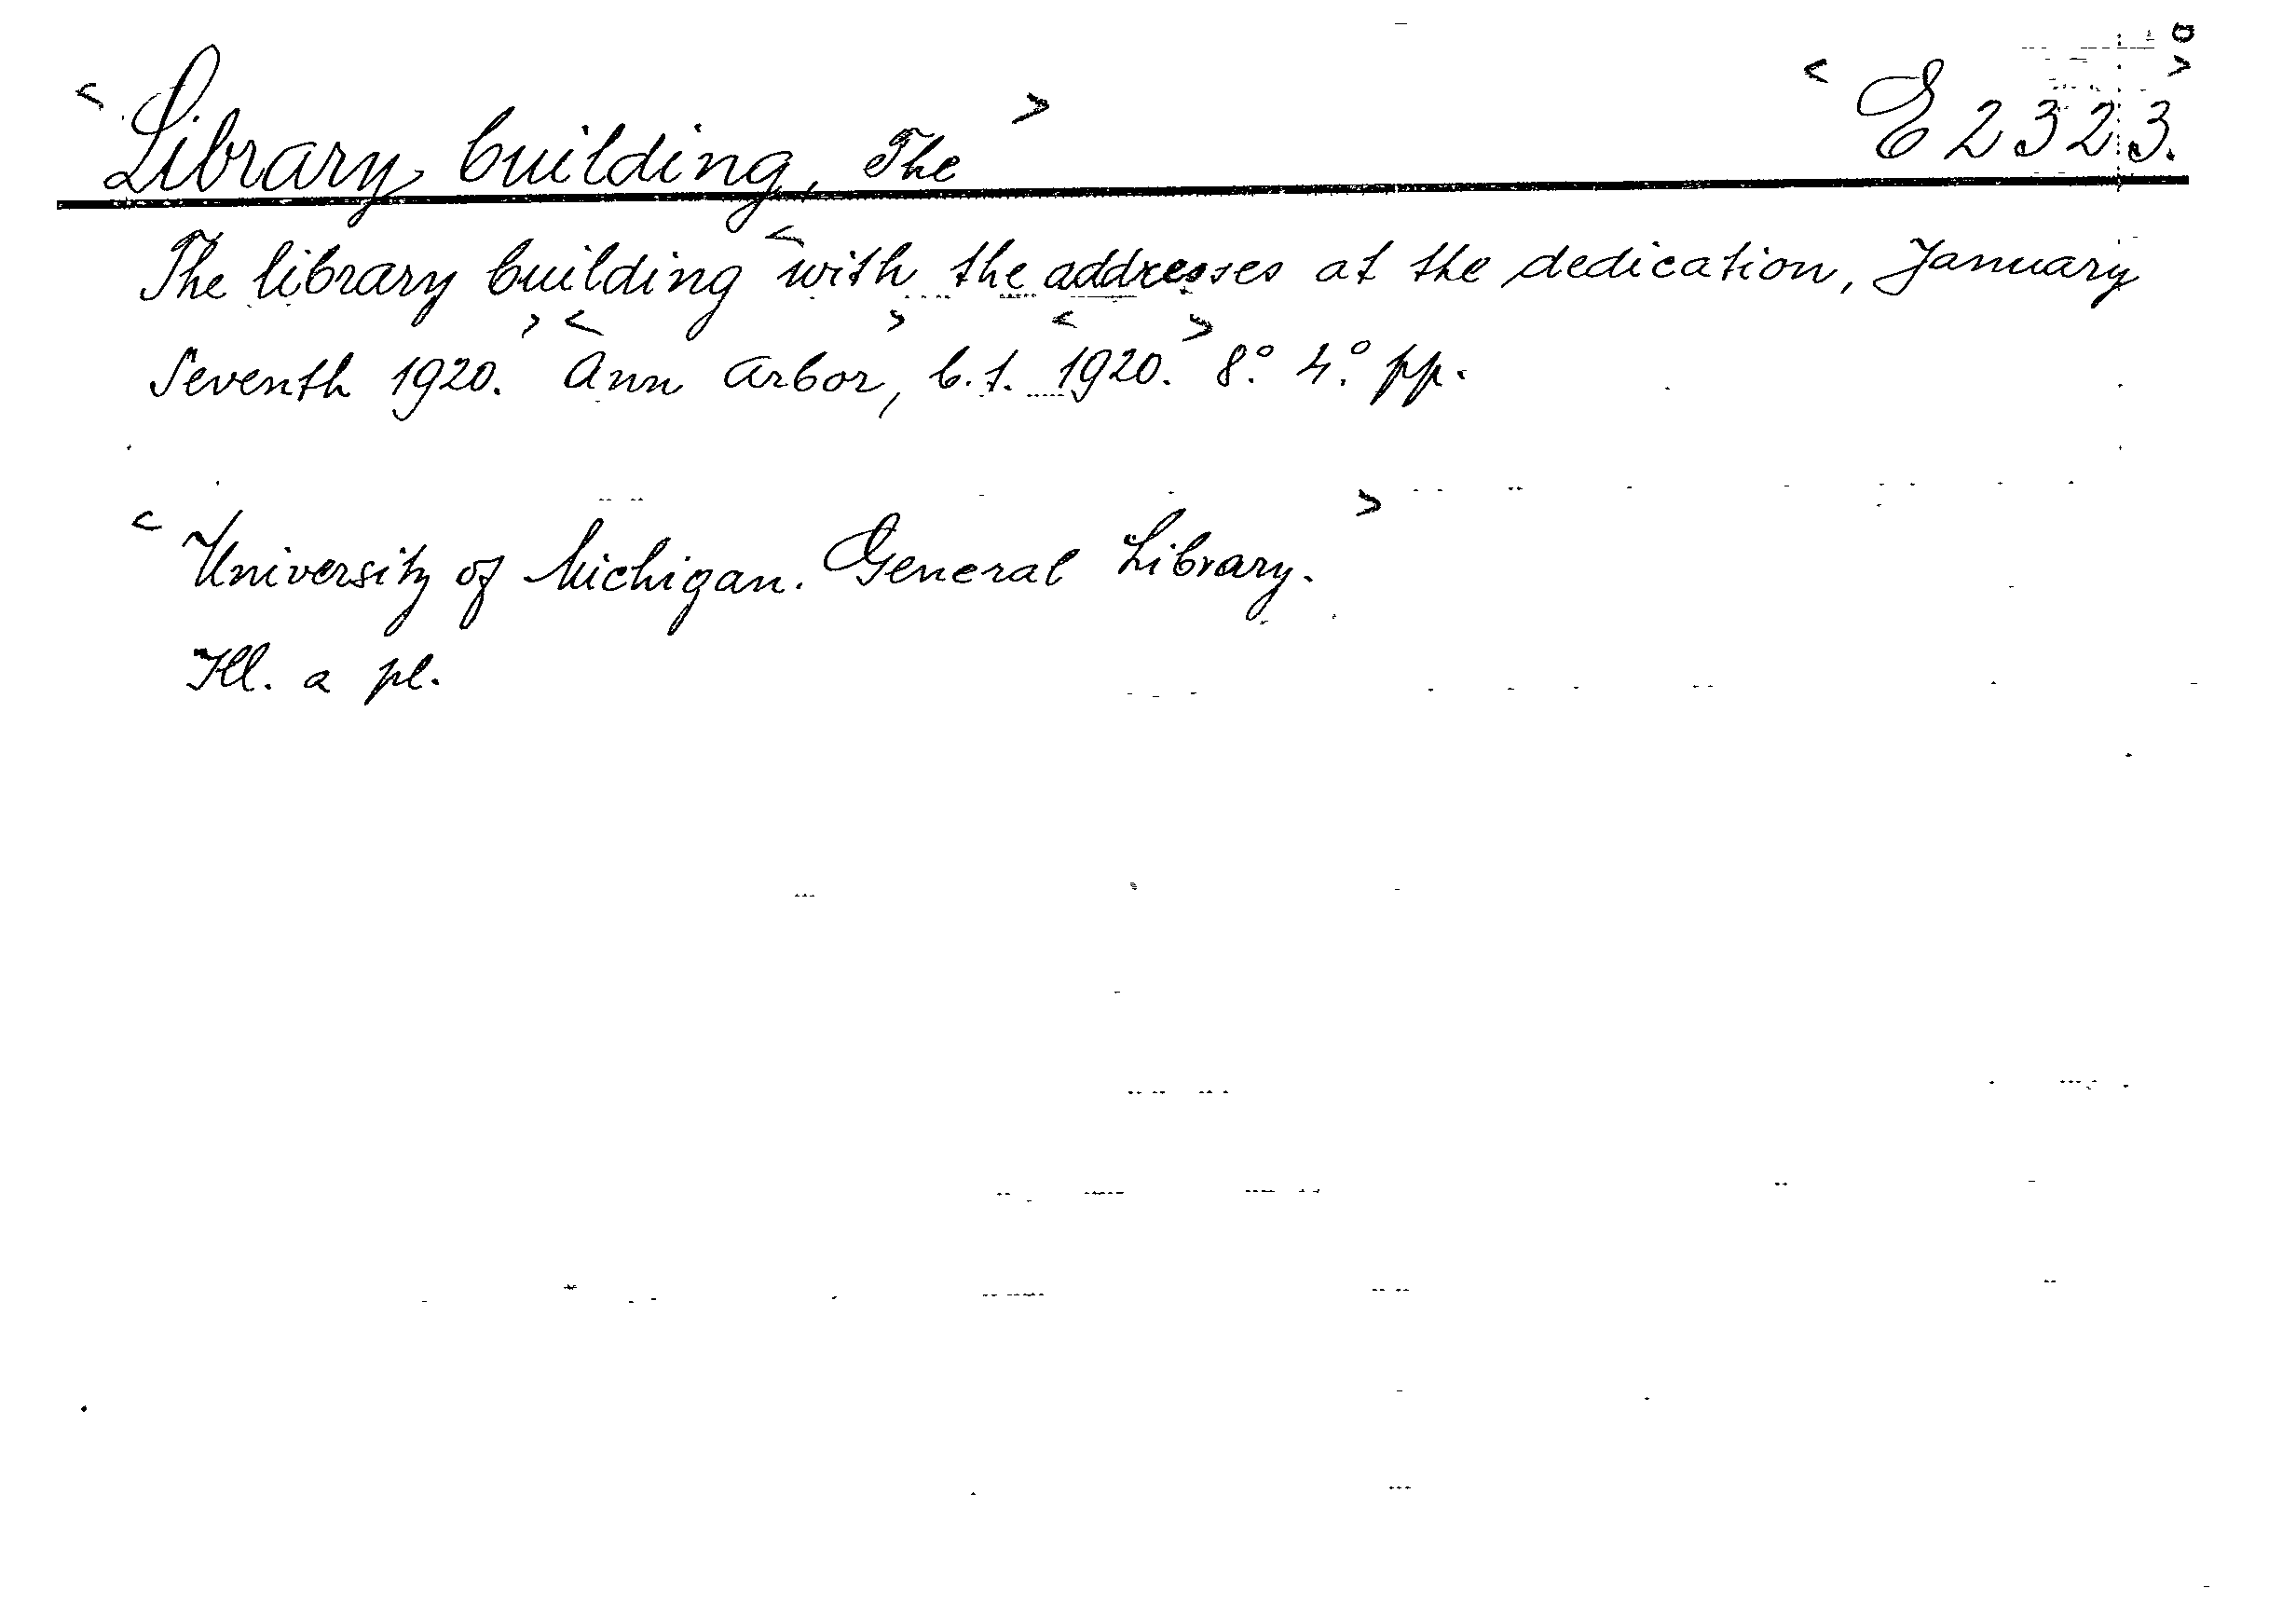 <Library building, The> <E 2323.>
The library building <with the addresses at the dedication, January
Seventh 1920.> <Ann Arbor,> b.t. <1920.> 8.° 4.° pp.
<University of Michigan. General Library.>
Ill. a pl.